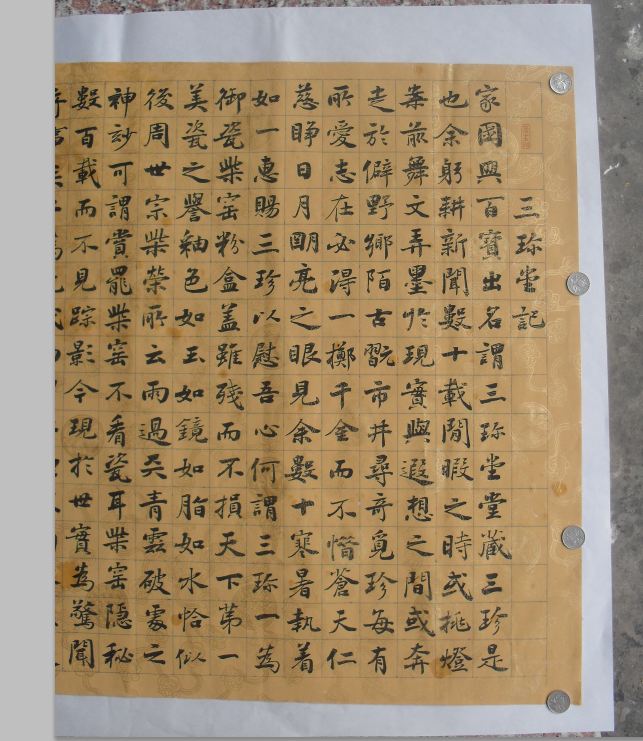 三珎堂記
家國興百寶出名謂三珎堂堂藏三珎是
也余躬耕新聞數十載閒暇之時或挑燈
案前舞文弄墨於現實與遐想之間或奔
走於僻野鄉陌古翫市井尋奇覓珍每有
所愛志在必得一擲千金而不惜蒼天仁
慈睜日月朙亮之眼見余數十寒暑執着
如一惠賜三珍以慰吾心何謂三珎一為
御瓷柴窑粉盒蓋雖殘而不損天下第一
美瓷之譽釉色如玉如鏡如脂如水恰似
後周世宗柴榮所云雨過天青雲破處之
神妙可謂賞罷柴窑不看瓷耳柴窑隱秘
數百載而不見踪影今現於世實為驚聞